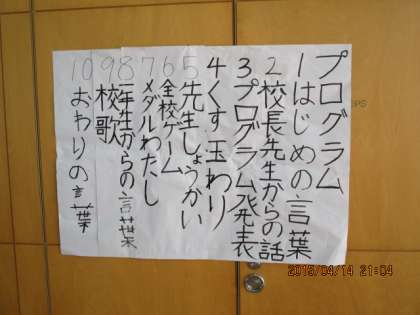 プログラム
1はじめの言葉
2校長先生からの話
3プログラム発表
4くす玉わり
5先生しょうかい
6全校ゲーム
7メダルわたし
8一年生からの言葉
9校歌
10おわりの言葉
2015/04/14 21:04